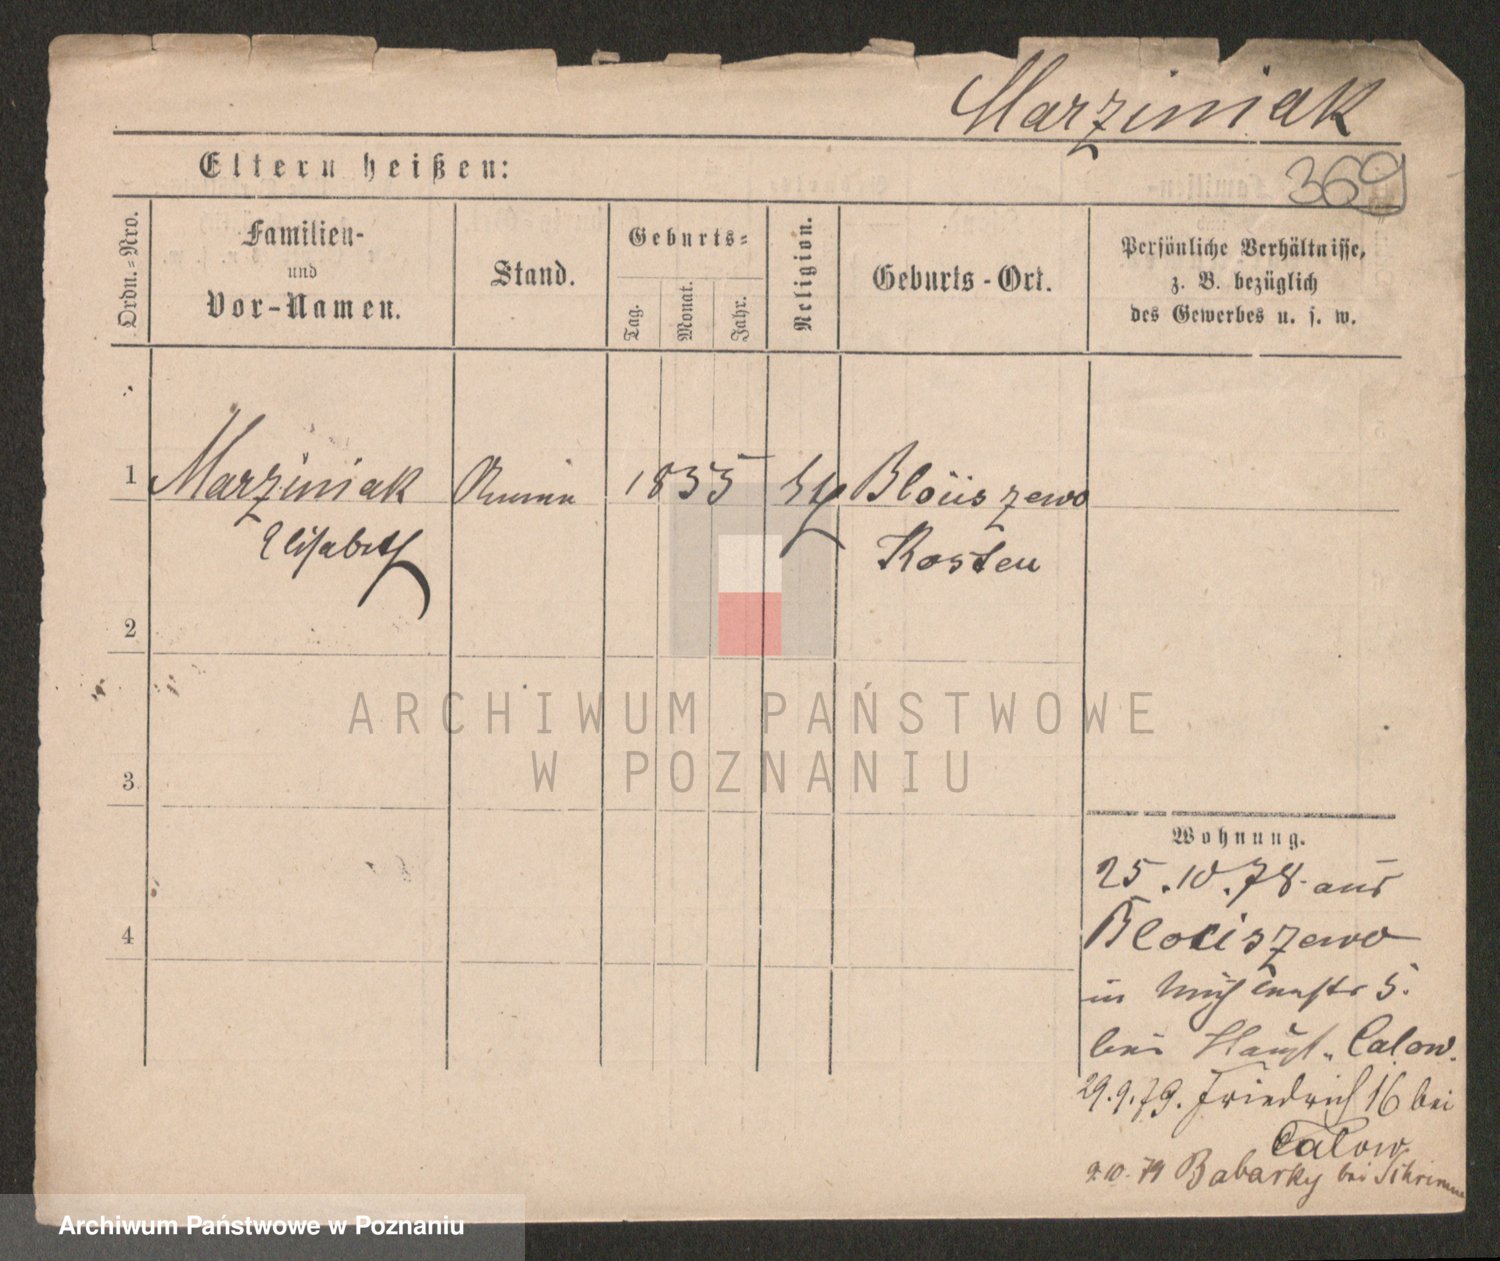 Marziniak
369
Eltern heißen:
Ordn.=Nro.
Familien-
und
Vor-Namen.
Stand.
Geburts=
Tag.
Monat.
Jahr.
Religion.
Geburts-Ort.
Persönliche Verhältnisse,
z. B. bezüglich
des Gewerbes u. s. w.
1 Marziniak 1855 Bloiiszewo
Elisabeth Kosten
2
3
4
ARCHIWUM PAŃSTWOWE
W POZNANIU
Wohnung.
25.10.78. aus
Blociszewo
in 5.
bei Calow.
29.9.79. Friedrich 16 bei
Calow.
9.10.79 Babarky bei Schrimm
Archiwum Państwowe w Poznaniu